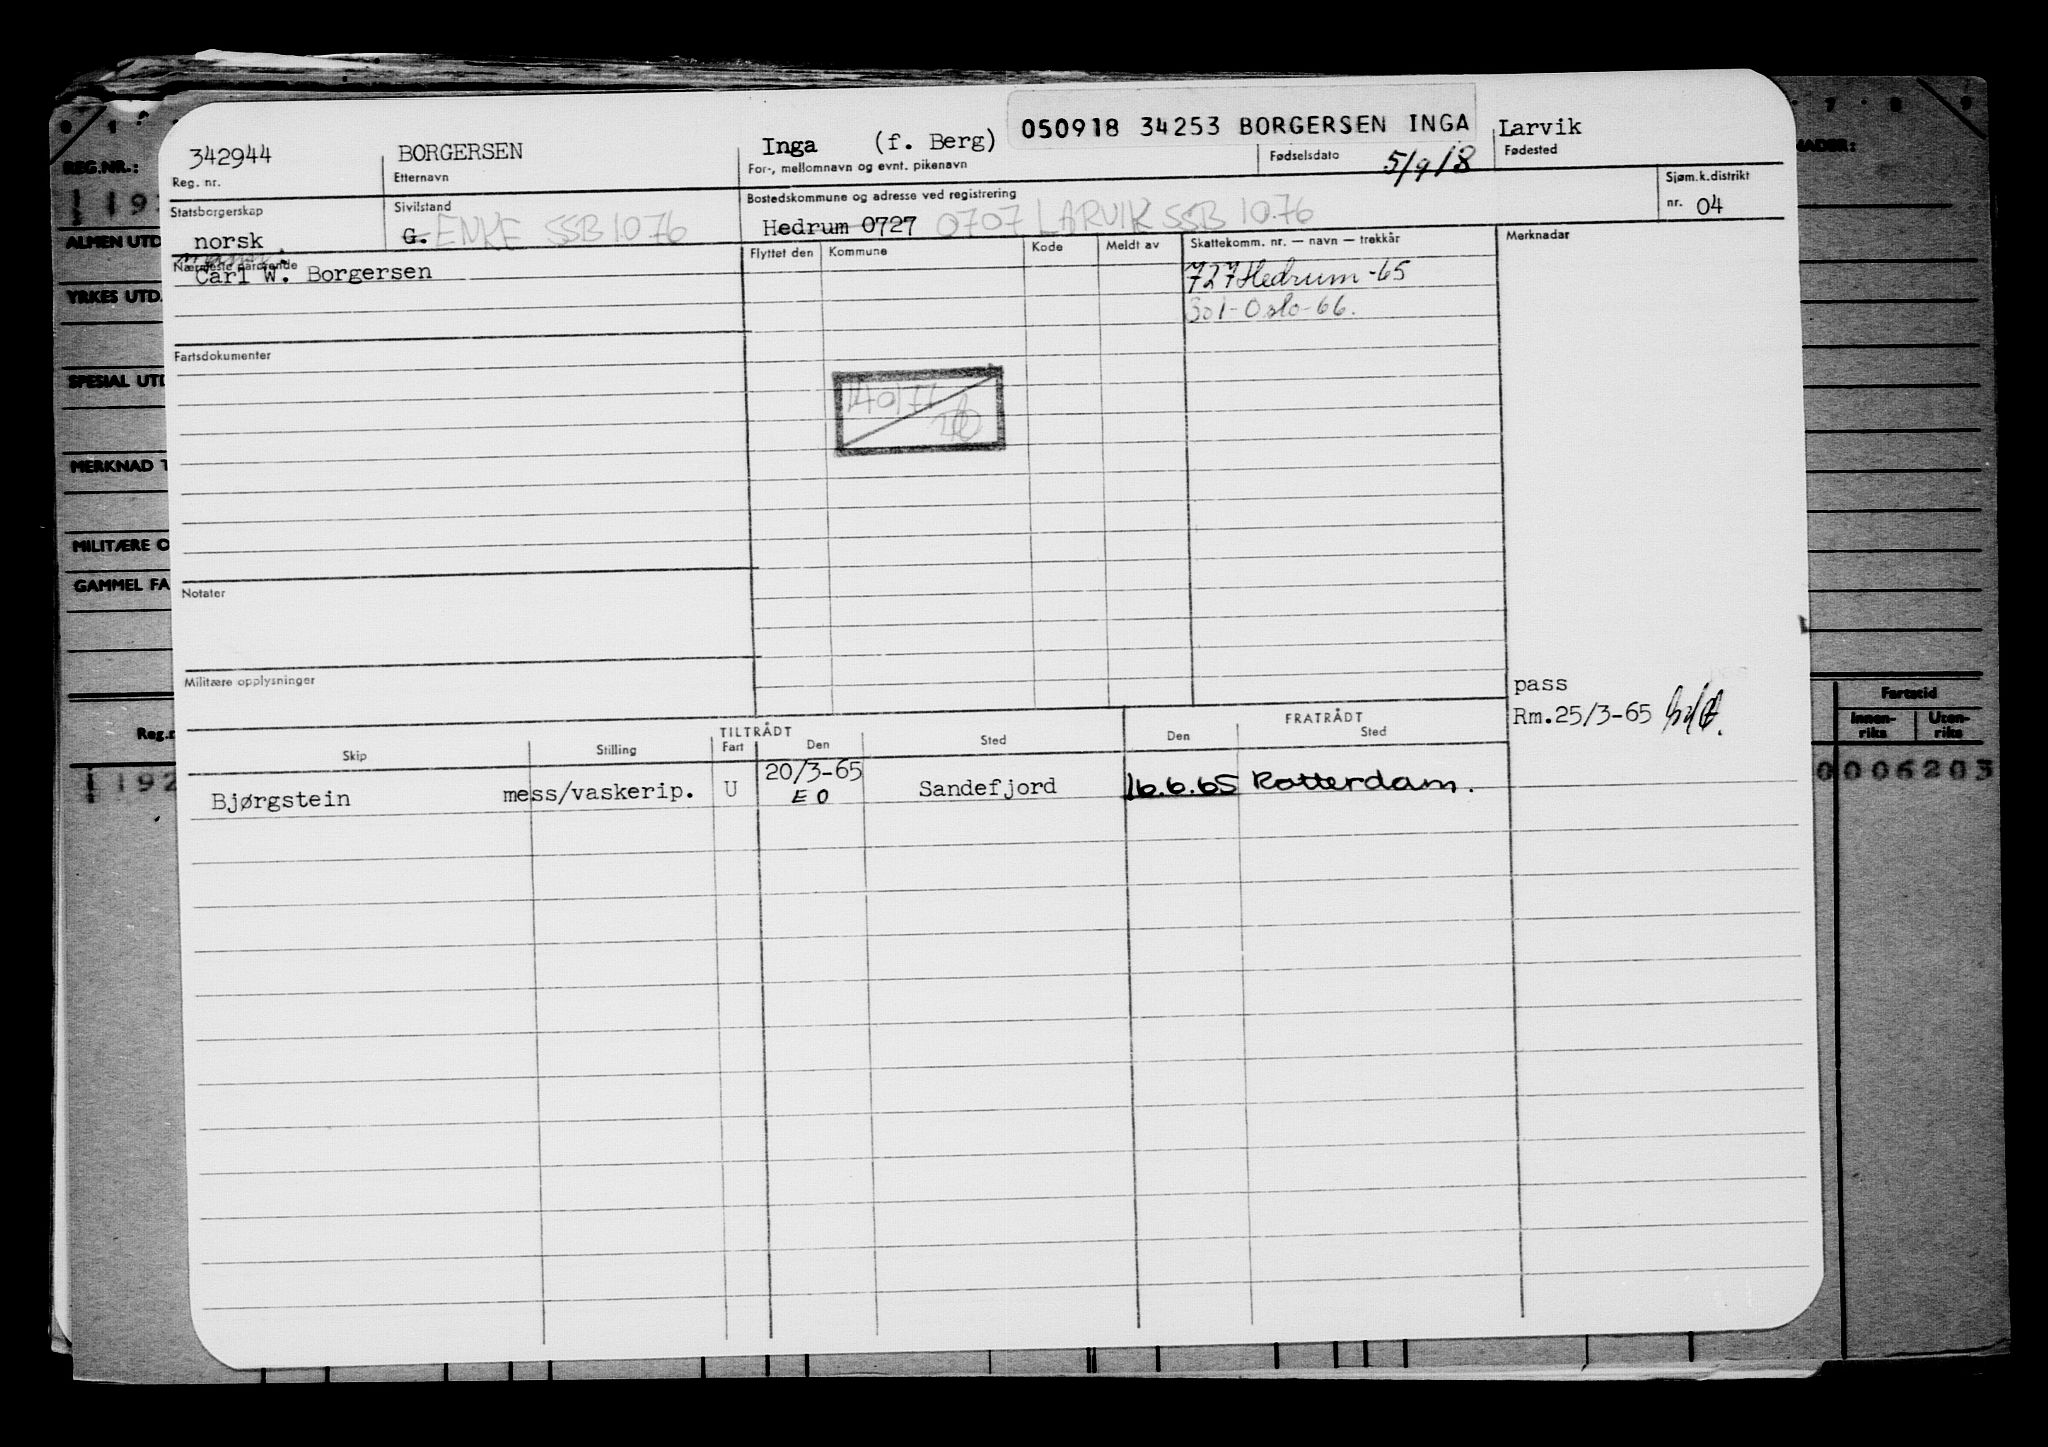 050918 34253 BORGERSEN INGA
342944 BORGERSEN Inga (f. Berg) 5/9/18 Larvik
Reg. nr. Etternavn For-, mellomnavn og evnt. pikenavn Fødselsdato Fødested
Statsborgerskap Sivilstand Bostedskommune og adresse ved registrering Sjøm.k.distrikt
norsk G. ENKE SSB 10 76 Hedrum 0727 0707 LARVIK SSB 10.76 nr. 04
Nærmeste pårørende Flyttet den Kommune Kode Meldt av Skattekomm. nr. — navn — trekkår Merknadar
Carl W. Borgersen 727 Hedrum-65
301-Oslo-66.
Fartsdokumenter
Notater
Militære opplysninger
pass
Rm.25/3-65
TILTRÅDT FRATRÅDT
Skip Stilling Fart Den Sted Den Sted
Bjørgstein mess/vaskerip. U 20/3-65 Sandefjord 16.6.65 Rotterdam.
E O
REG.NR.:
192
ALMEN UTD
YRKES UTD.
SPESIAL UTD
MERKNAD T
MILITÆRE O
GAMMEL FA
Reg.n
192
7 8 9
NADER:
Fartstid
Innen-riks Uten-riks
0006203